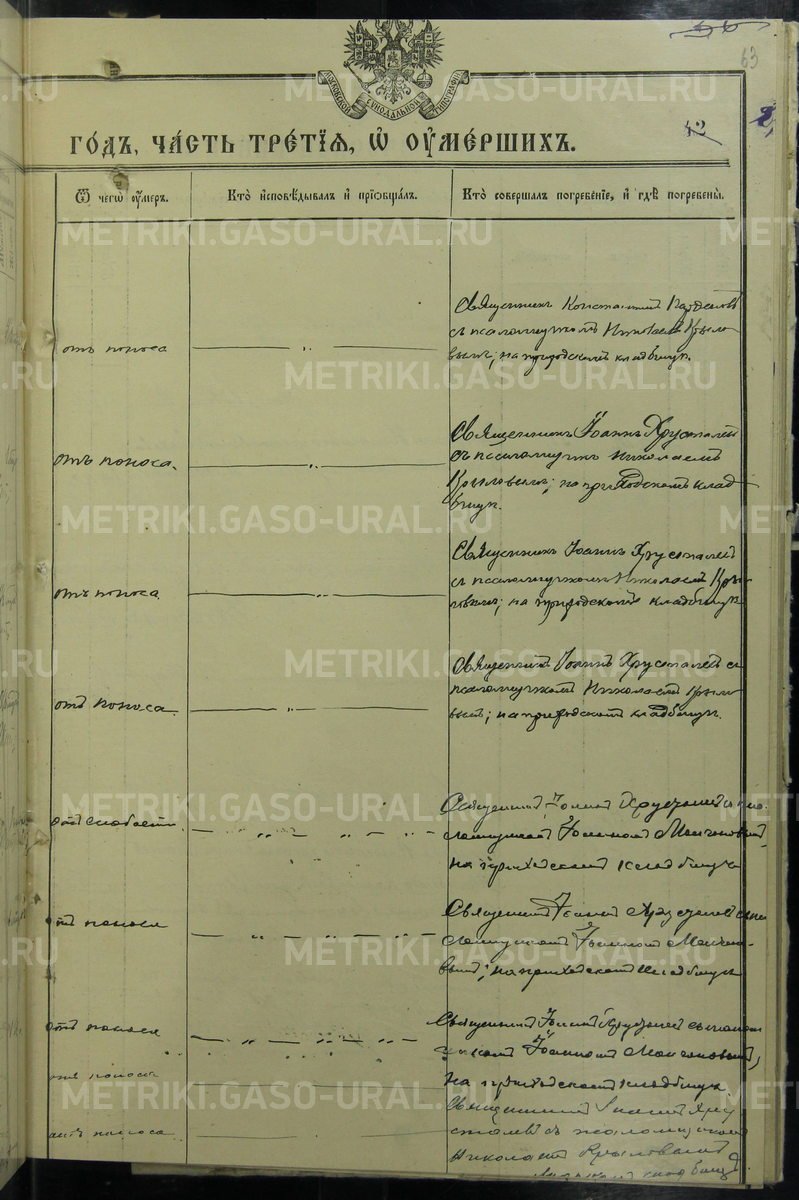 63
42
МОСКОВСКОЙ СѴНОДАЛЬНОЙ ТИПОГРАФІИ
ГО́ДЪ, ЧА́СТЬ ТРЕ́ТІЯ, Ѽ ОУМЕ́РШИХЪ.
Ѿ чегѡ̀ оу҆́меръ.
Кто̀ и҆сповѣ́дывалъ и҆ прїѡбща́лъ.
Кто̀ соверша́лъ погребе́нїе, и҆ гдѣ̀ погребены̀.
отъ поноса
Священникъ Константинъ
съ псаломщикомъ Николаемъ Крыло
вымъ; на приходскомъ кладбищѣ.
отъ поноса.
Священникъ Іоаннъ Хрусталевъ
съ псаломщикомъ Николаемъ
Крыловымъ; на приходскомъ клад
бищѣ.
отъ поноса
Священникъ Іоаннъ Хрусталевъ
съ псаломщикомъ Николаемъ Кры
ловымъ; на приходскомъ кладбищѣ
отъ поноса.
Священникъ Іоаннъ Хрусталевъ съ
псаломщикомъ Николаемъ Крыло
вымъ; на приходскомъ кладбищѣ.
отъ слабости
Священникъ Іоаннъ Хрусталевъ съ пса
ломщикомъ Іоанномъ
на приходскомъ кладбищѣ
отъ поноса
Священникъ Іоаннъ Хрусталевъ съ пса
ломщикомъ Іоанномъ
вымъ; на приходскомъ кладбищѣ
отъ поноса
Священникъ Іоаннъ Хрусталевъ съ псалом
щикомъ Іоанномъ
на приходскомъ кладбищѣ
отъ поноса
отъ поноса
Священникъ Іоаннъ Хру
сталевъ съ псаломщикомъ
Николаемъ Крыловымъ
кладбищѣ
METRIKI.GASO-URAL.RU